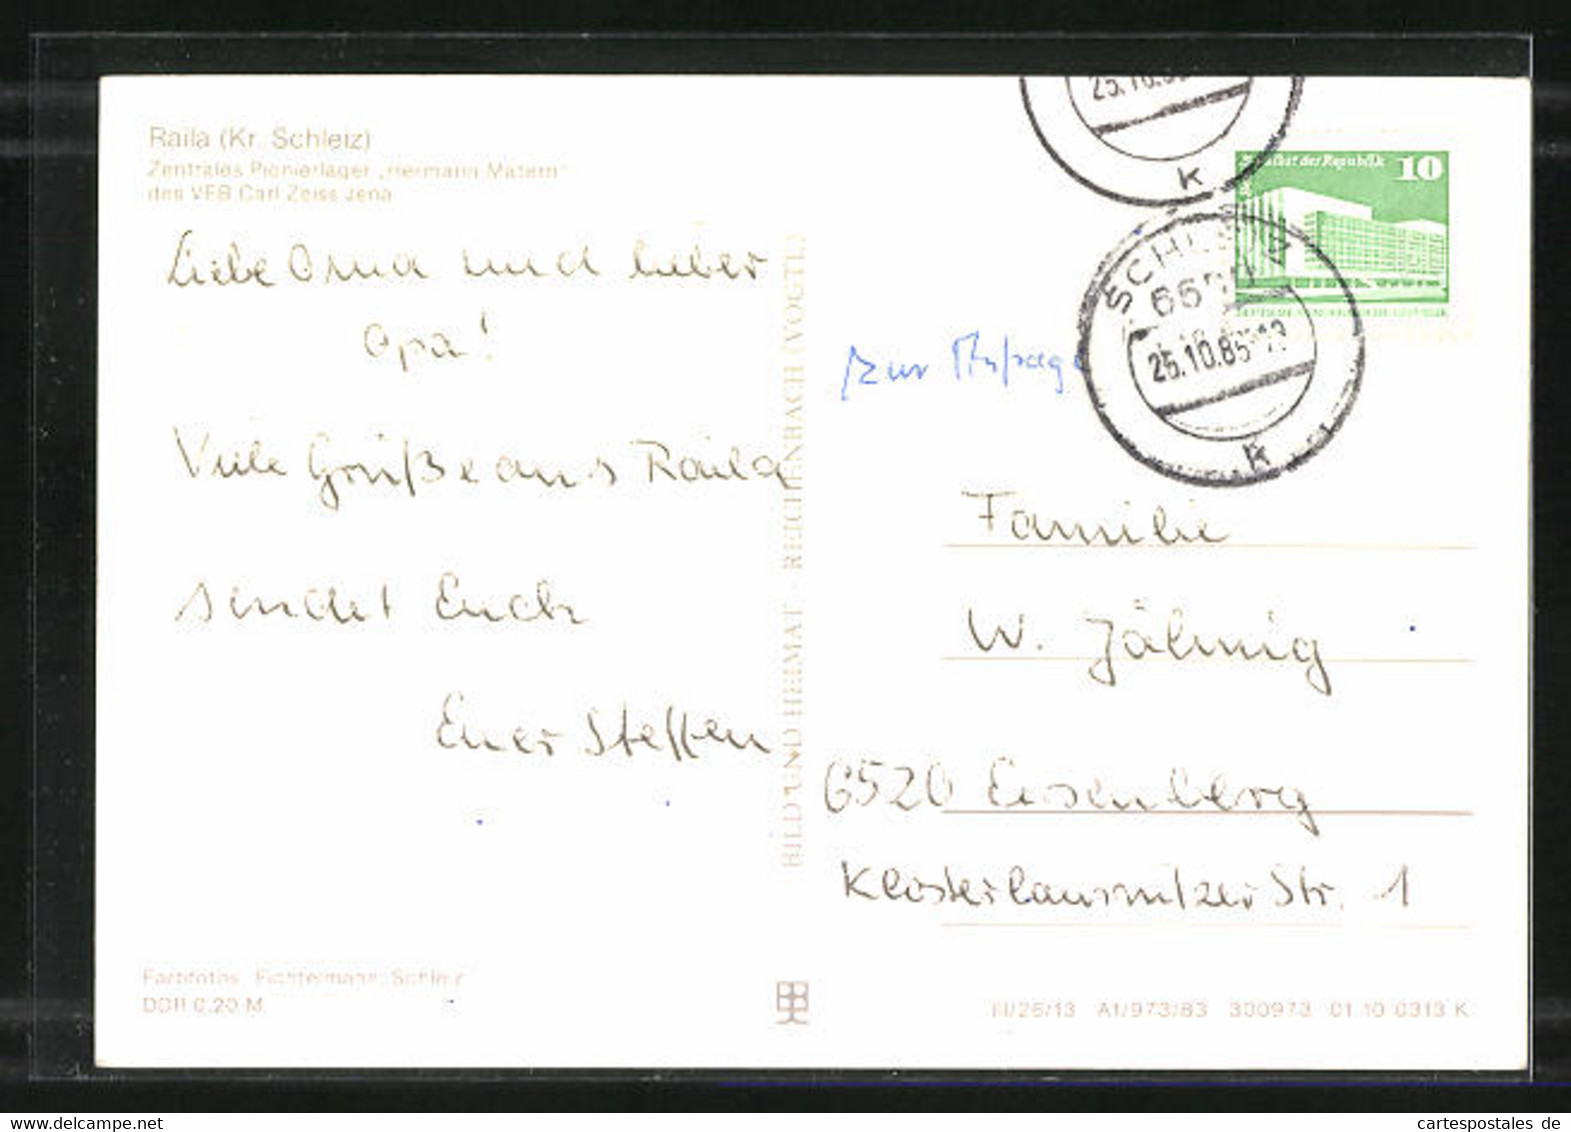 Raila (Kr. Schleiz)
Zentrales Pionierlager „Hermann Matern"
des VEB Carl Zeiss Jena
Liebe Oma und lieber
Opa!
Viele Grüße aus Raila
sendet Euch
Euer Steffen
Farbfotos: Fichtelmann, Schleiz
DDR 0,20 M
BILD UND HEIMAT · REICHENBACH (VOGTL)
25.10.85
K
Palast der Republik 10
SCHLEIZ
25.10.85
K
zur
Familie
W. Jähnig
6520 Eisenberg
Klosterlausnitzer Str. 1
III/26/13 A1/973/83 300973 01 10 0313 K
cartespostales de